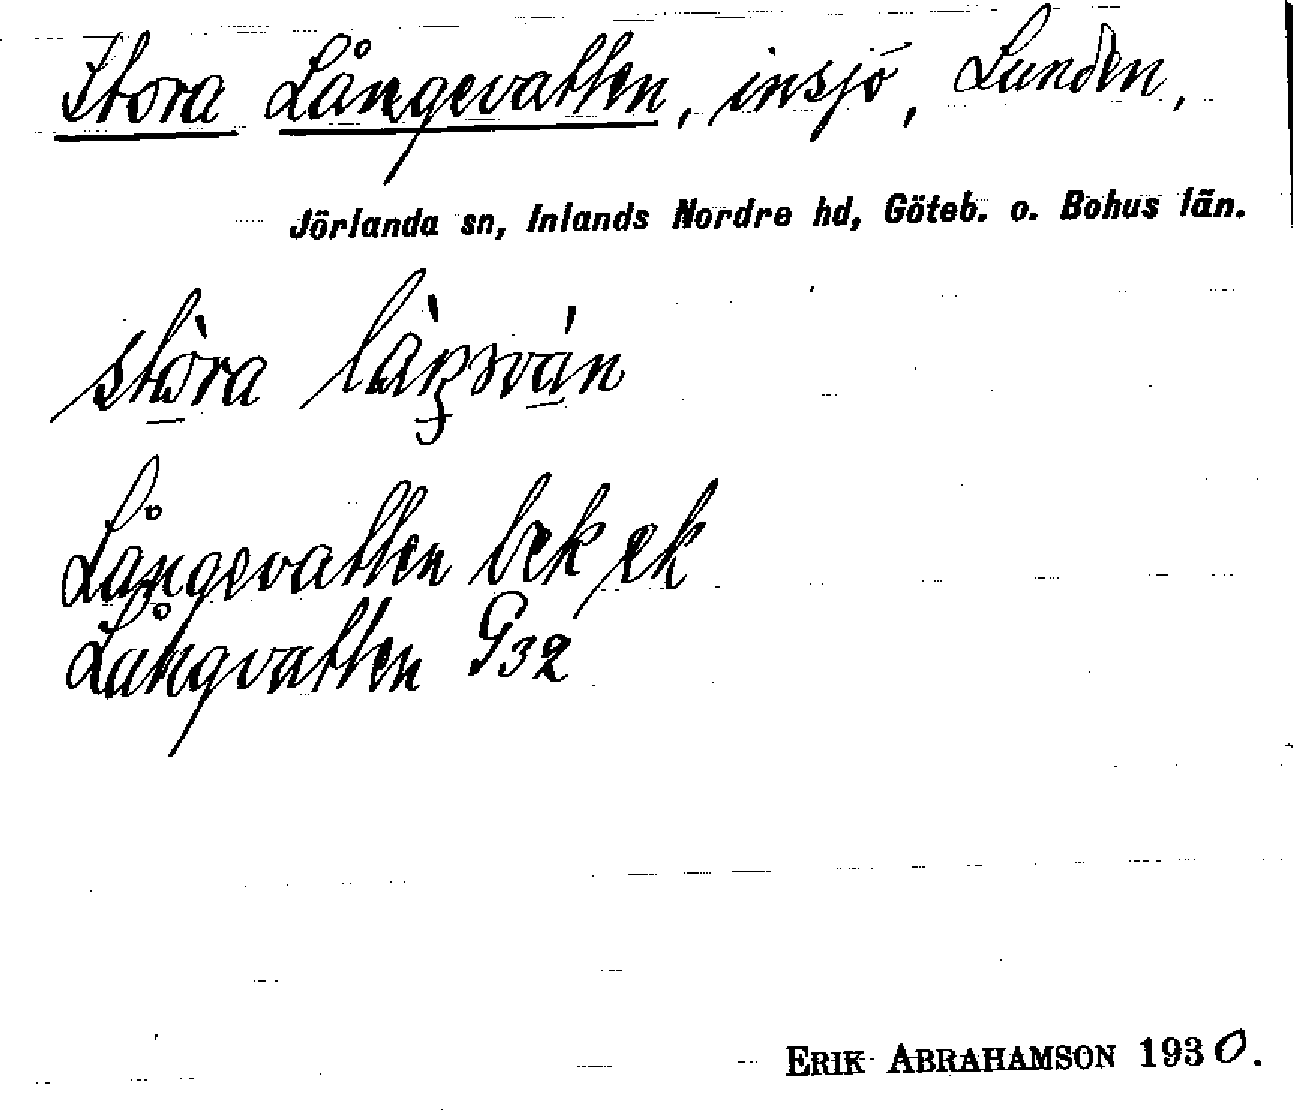 Stora Långevatten, insjö, Lunden,
Jörlanda sn, Inlands Nordre hd, Göteb. o. Bohus län.
stòra
Långevatten bek ek
Långvatten G32
ERIK ABRAHAMSON 1930.